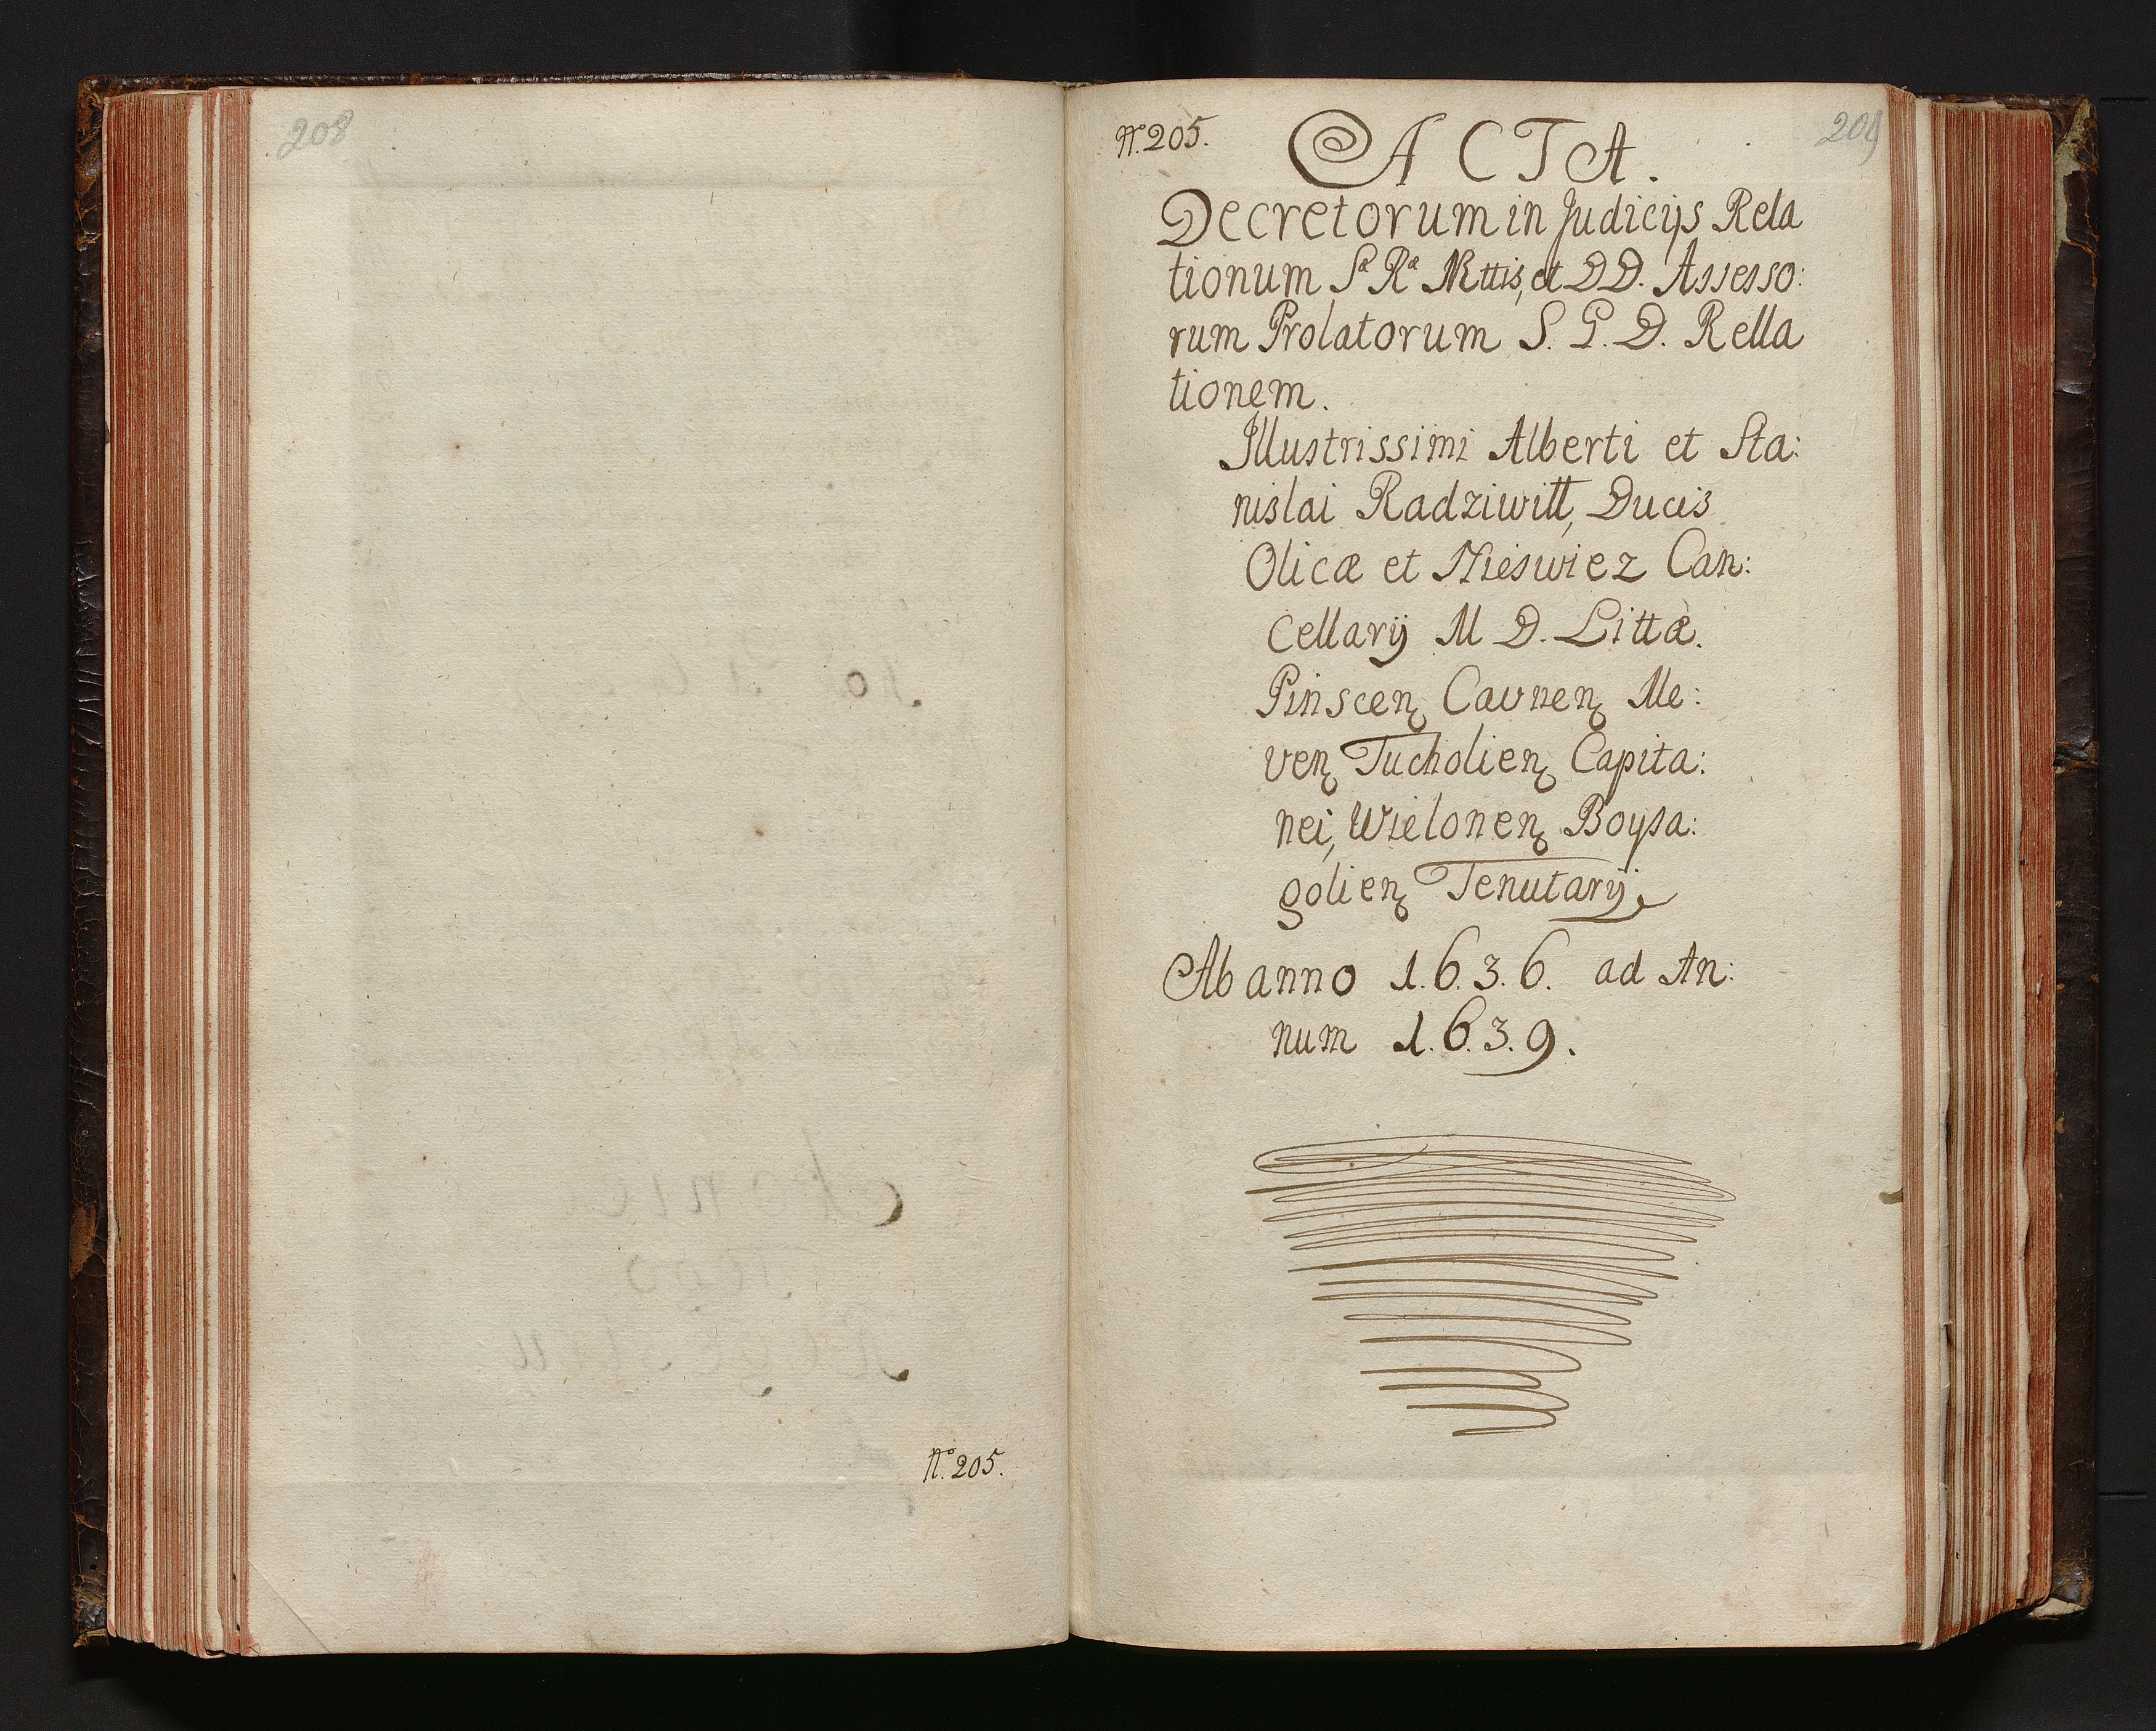 208
N.º 205.
N.º 205.
209
ACTA.
Decretorum in Judicijs Rela
tionum Sæ Ræ Mttis, et DD. Assesso:
rum Prolatorum S. P. D. Rella
tionem.
Illustrissimi Alberti et Sta:
nislai Radziwiłł, Ducis
Olicæ et Nieswiez Can:
Cellarij M D. Littæ.
Pinscen Caunen Me:
ven Tucholien Capita:
nei, Wielonen Boysa:
golien Tenutarij.
Ab anno 1.6.3.6. ad An:
num 1.6.3.9.